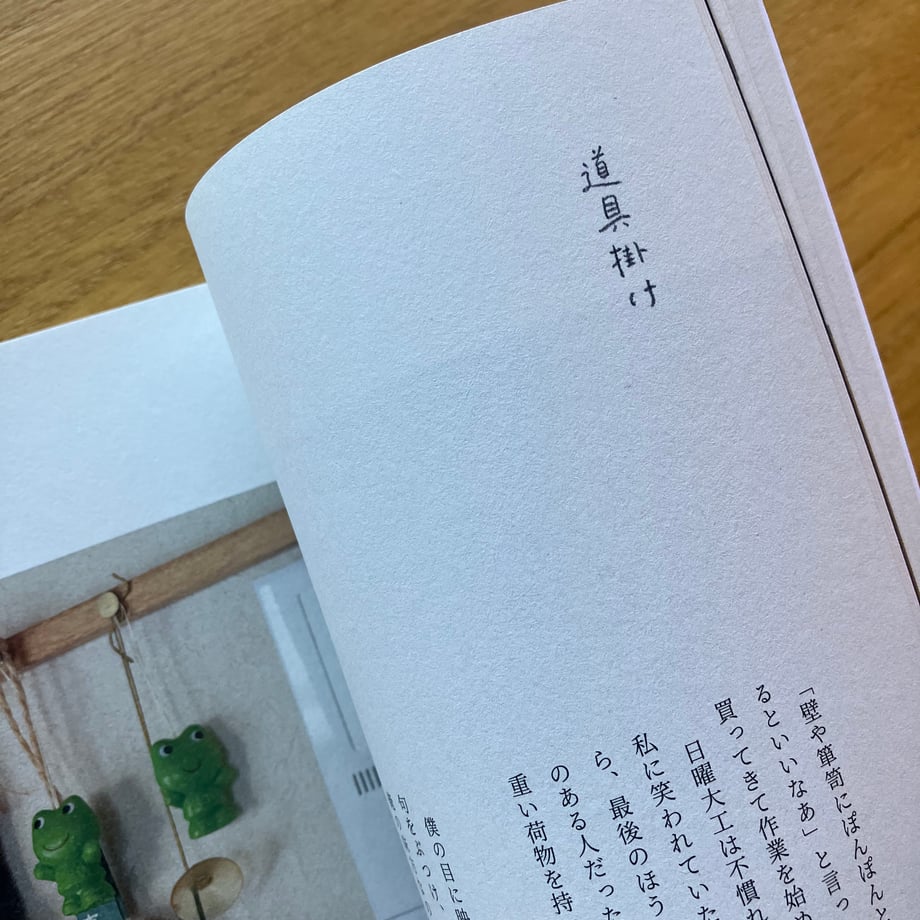 道具掛け
「壁や箪笥にぽんぽんと
るといいなあ」と言っ
買ってきて作業を始め
日曜大工は不慣れ
私に笑われていた
ら、最後のほう
のある人だった
重い荷物を持
僕の目に映
句をぶつけ、